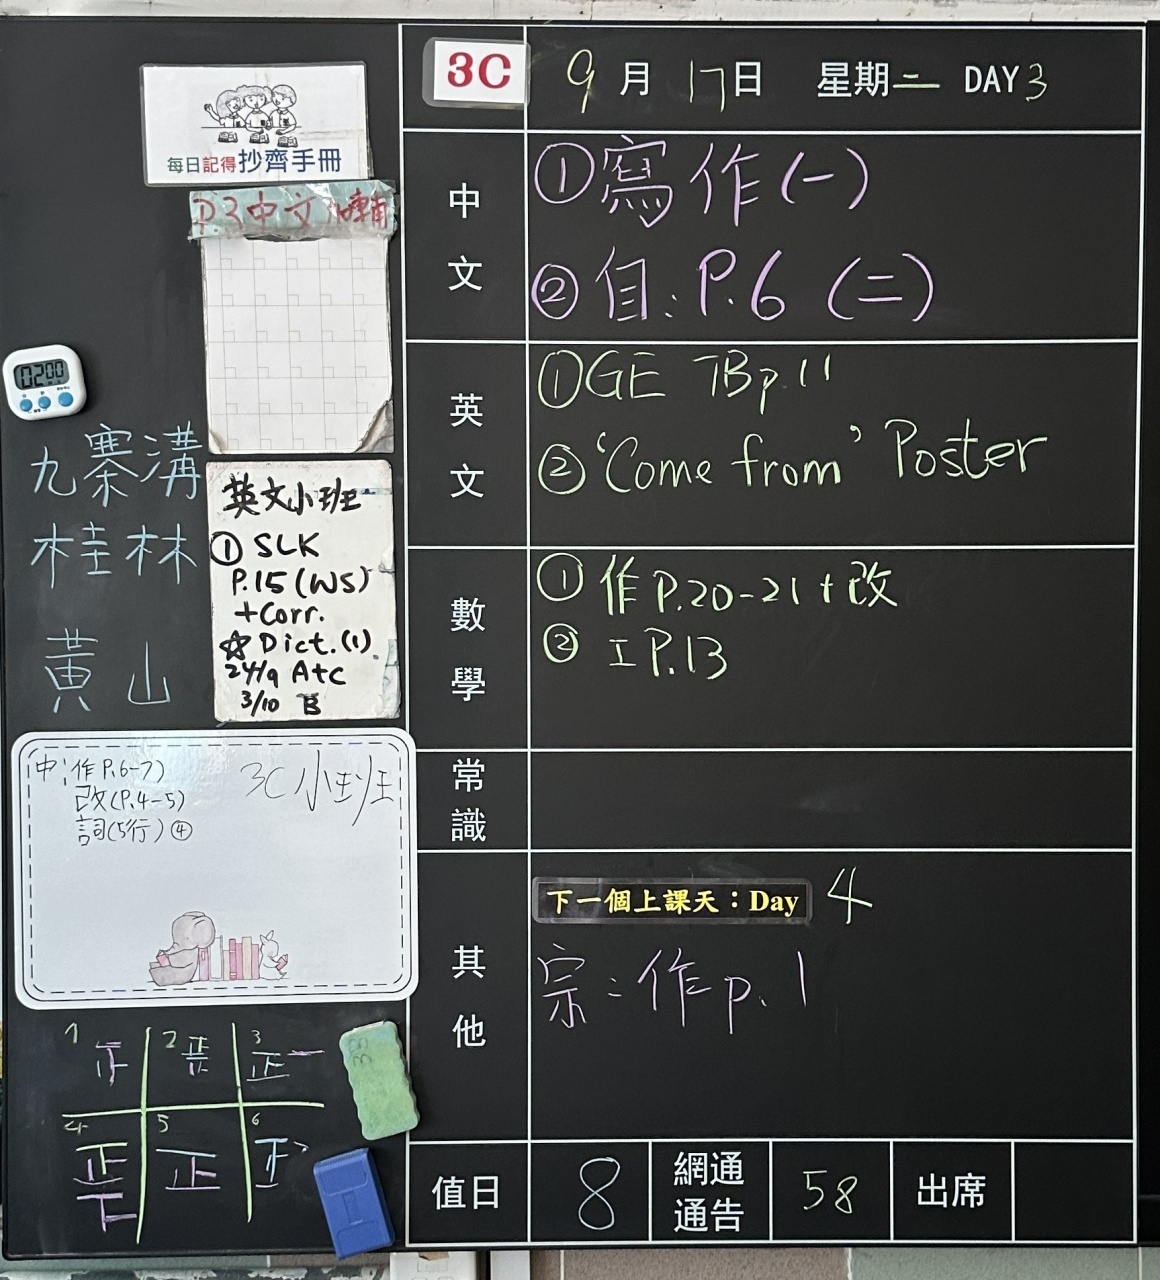 3C
9月17日 星期二 DAY 3
每日記得抄齊手冊
P.3中文
中文
①寫作(一)
②自:P.6 (二)
英文
①GE TBp.11
②'Come from' Poster
數學
①作P.20-21+改
②工P.13
常識
其他
下一個上課天:Day 4
宗:作p.1
值日 8 網通通告 58 出席
0200
九寨溝
桂林
黃山
英文小班
① SLK
P.15(WS)
+Corr.
☆Dict.(1).
24/9 A+C
3/10 B
3C小班
中:作P.6-7)
改(P.4-5)
詞(5行)④
1 正 2 3 正一
4 正 5 正 6